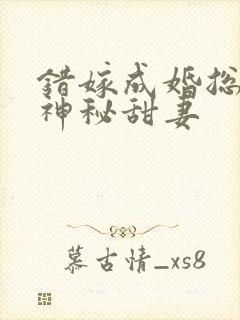 错嫁成婚总
神秘甜妻
慕古情_xs8